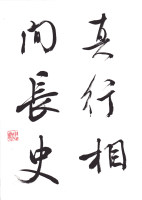 真行相
間長史